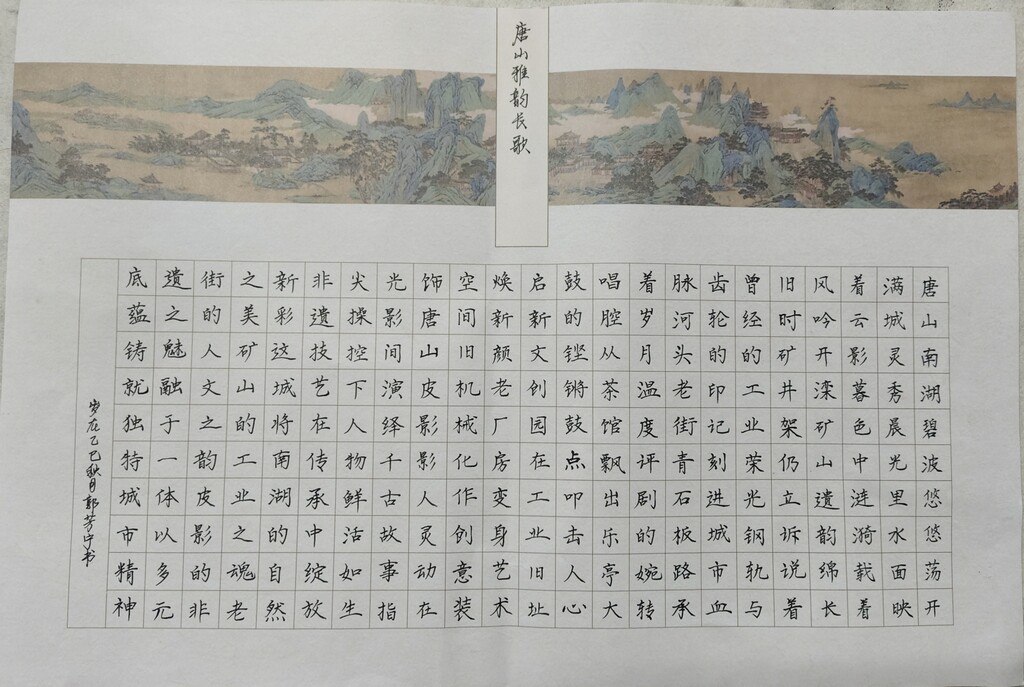 唐山雅韵长歌
唐山南湖碧波悠悠荡开
满城灵秀晨光里水面映
着云影暮色中涟漪载着
风吟开滦矿山遗韵绵长
旧时矿井架仍立诉说着
曾经的工业荣光钢轨与
齿轮的印记刻进城市血
脉河头老街青石板路承
着岁月温度评剧的婉转
唱腔从茶馆飘出乐亭大
鼓的铿锵鼓点叩击人心
启新文创园在工业旧址
焕新颜老厂房变身艺术
空间旧机械化作创意装
饰唐山皮影影人灵动在
光影间演绎千古故事指
尖操控下人物鲜活如生
非遗技艺在传承中绽放
新彩这城将南湖的自然
之美矿山的工业之魂老
街的人文之韵皮影的非
遗之魅融于一体以多元
底蕴铸就独特城市精神
岁在乙巳秋月郭芳宁书